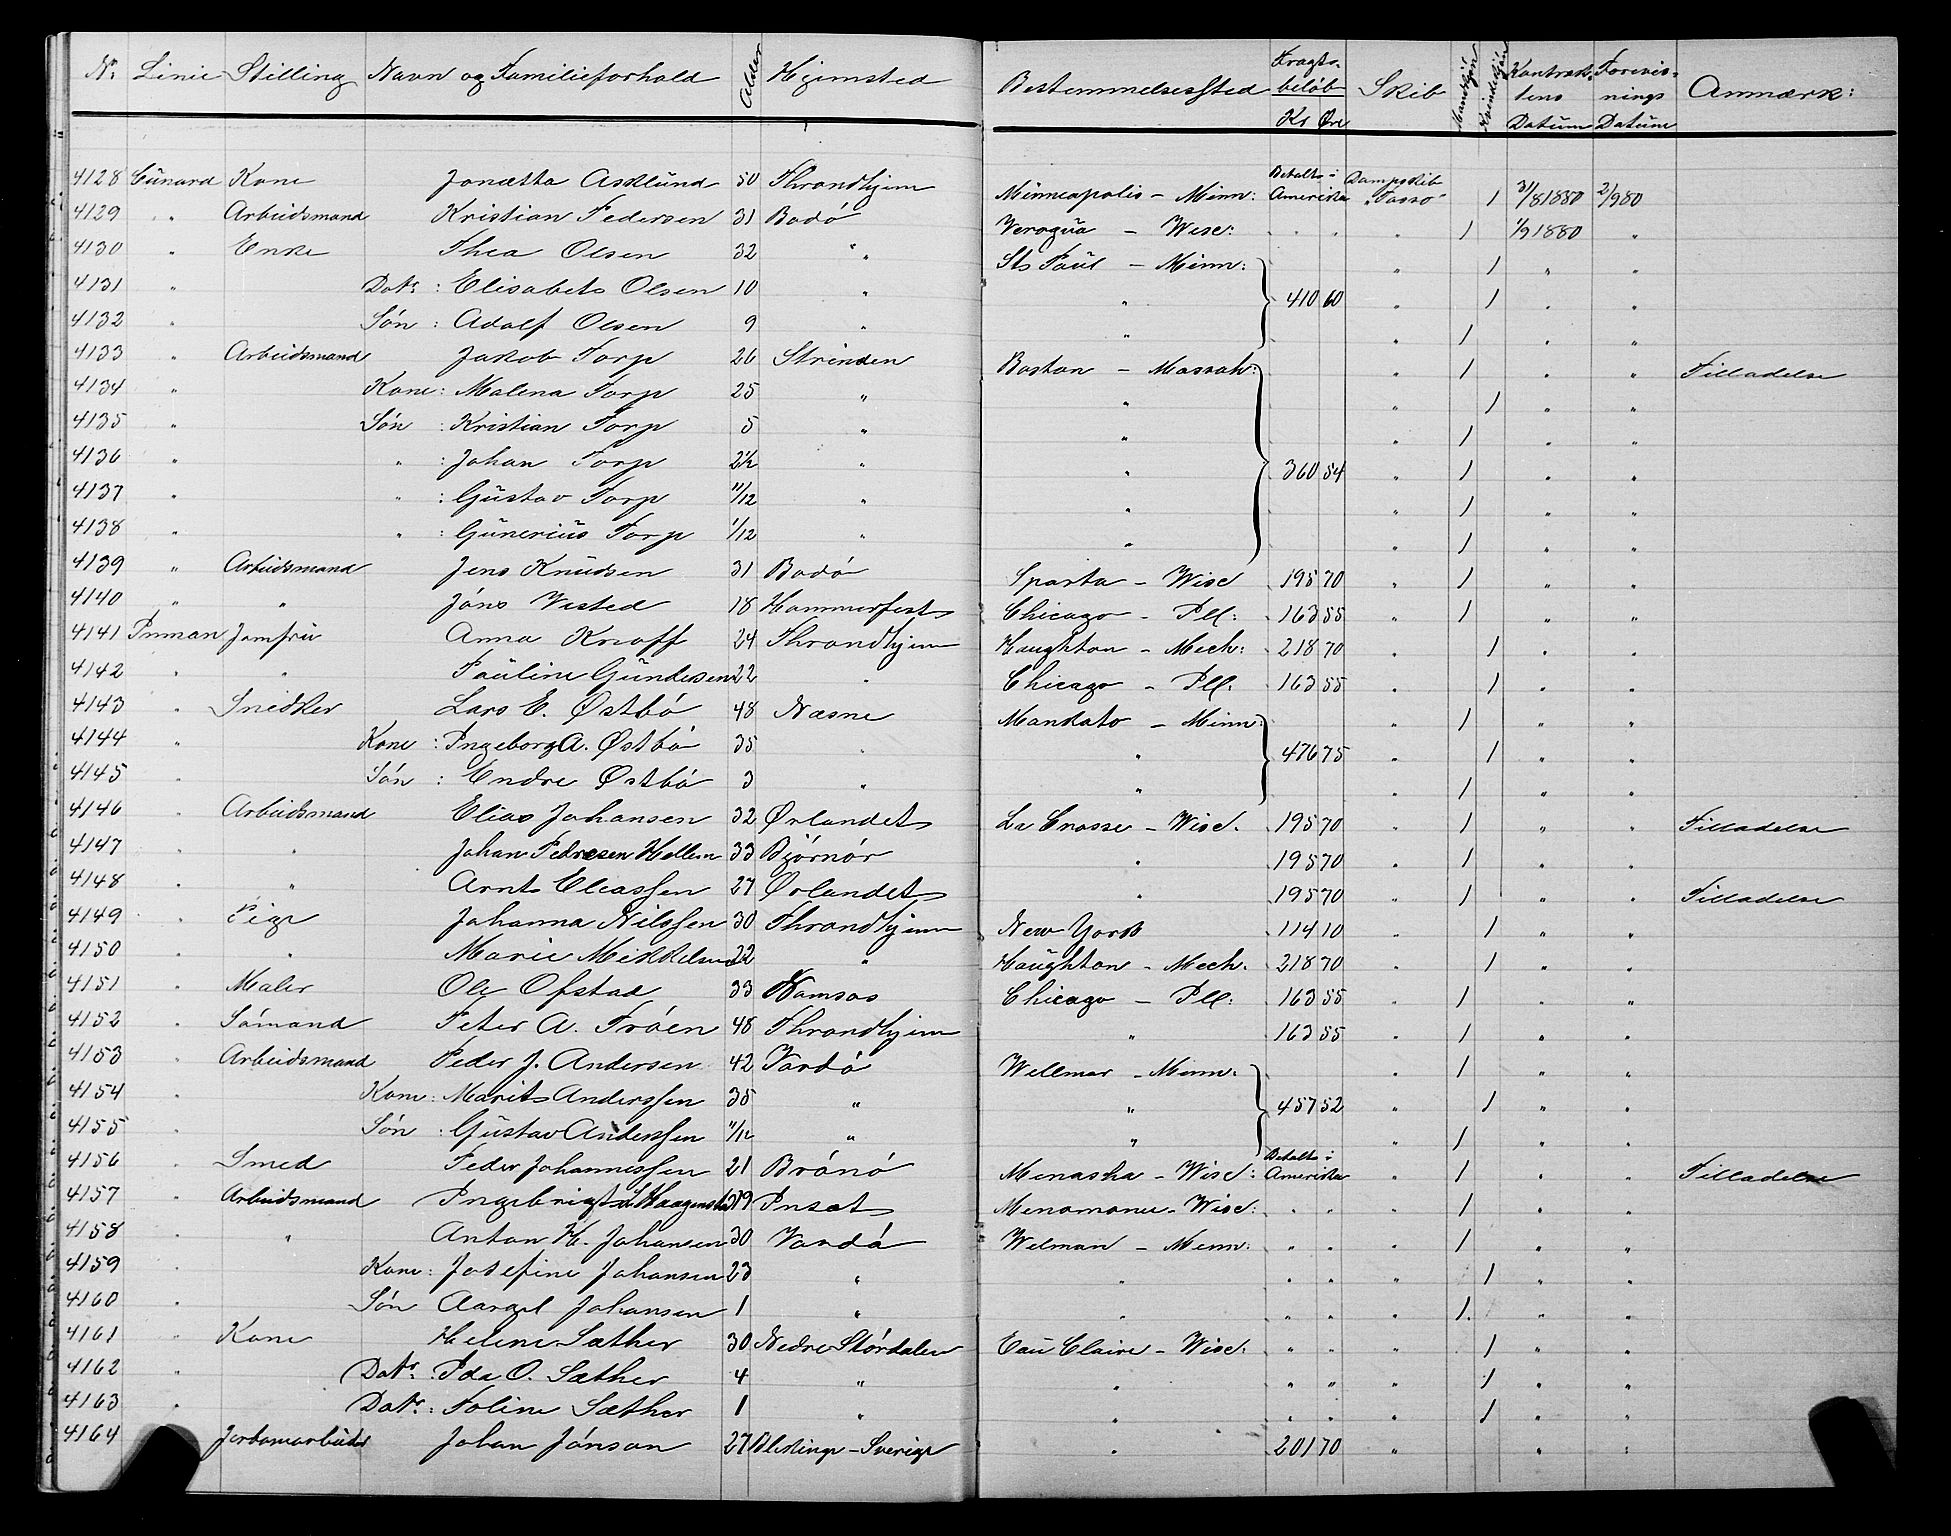 Nr. Linie Stilling Navn og Familieforhold Alder Hjemsted Bestemmelsessted Fragtsbeløb Kr Øre Skib Mandkjøn Kvindekjøn Kontraktens Datum Forevisnings Datum Anmærk:
4128 Cunard Kone Jonætta Asklund 50 Throndhjem Minneapolis – Minn: Betalt i Amerika Dampskib "Tasso" 1 31/8 1880 2/9 80
4129 " Arbeidsmand Kristian Pedersen 31 Bodö Veroqua – Wisc: " " " 1 1/9 1880 "
4130 " Enke Thea Olsen 32 " St Paul – Minn: " 1 " "
4131 " Datr: Elisabeth Olsen 10 " " 410 60 " 1 " "
4132 " Sön: Adolf Olsen 9 " " " 1 " "
4133 " Arbeidsmand Jakob Torp 26 Strinden Boston – Massah: " 1 " " Tilladelse
4134 " Kone: Malena Torp 25 " " " 1 " "
4135 " Sön: Kristian Torp 5 " " " 1 " "
4136 " " : Johan Torp 2½ " " 360 54 " 1 " "
4137 " " : Gustav Torp 11/12 " " " 1 " "
4138 " " : Gunerius Torp 1/12 " " " 1 " "
4139 " Arbeidsmand Jens Knudsen 31 Bodö Sparta – Wisc 195 70 " 1 " "
4140 " " Jöns Wisted 18 Hammerfest Chicago – Ill: 163 55 " 1 " "
4141 Inman Jomfru Anna Knoff 24 Throndhjem Haughton – Mech: 218 70 " 1 " "
4142 " " Pauline Gundersen 22 " Chicago – Ill: 163 55 " 1 " "
4143 " Snedker Lars E. Østbö 48 Næsne Mankato – Minn: " 1 " "
4144 " Kone: Ingeborg A. Østbö 35 " " 476 75 " 1 " "
4145 " Sön: Endre Østbö 3 " " " 1 " "
4146 " Arbeidsmand Elias Johansen 32 Ørlandet La Crosse – Wisc. 195 70 " 1 " " Tilladelse
4147 " " Johan Pedersen Hellem 33 Björnör " 195 70 " 1 " "
4148 " " Arnt Eliassen 27 Ørlandet " 195 70 " 1 " " Tilladelse
4149 " Pige Johanna Nilssen 30 Throndhjem New York 114 10 " 1 " "
4150 " " Marie Mikkelsen 22 " Haughton – Mech. 218 70 " 1 " "
4151 " Maler Ole Ofstad 33 Namsos Chicago – Ill: 163 55 " 1 " "
4152 " Sömand Peter A. Tröen 48 Throndhjem " 163 55 " 1 " "
4153 " Arbeidsmand Peder J. Andersen 42 Vardö Wellmar – Minn: " 1 " "
4154 " Kone: Marit Anderssen 35 " " 457 52 " 1 " "
4155 " Sön: Gustav Anderssen 11/12 " " " 1 " "
4156 " Smed Peder Johannessen 21 Brönö Menasha – Wisc: Betalt i Amerika " 1 " " Tilladelse
4157 " Arbeidsmand Ingebrigt 29 Insæt Menomonie – Wisc: " " " 1 " "
4158 " " Anton H. Johansen 30 Vardö Welman – Minn: " " " 1 " "
4159 " Kone: Josefine Johansen 23 " " " " " 1 " "
4160 " Sön Johansen 1 " " " " " 1 " "
4161 " Kone Heline Sæther 30 Nedre Stördalen Eau Claire – Wisc: " " " 1 " "
4162 " Datr: Ida O. Sæther 4 " " " " " 1 " "
4163 " Datr: Toline Sæther 1 " " " " " 1 " "
4164 Johan Jönson 27 Bleking – Sverige " 201 70 " " "